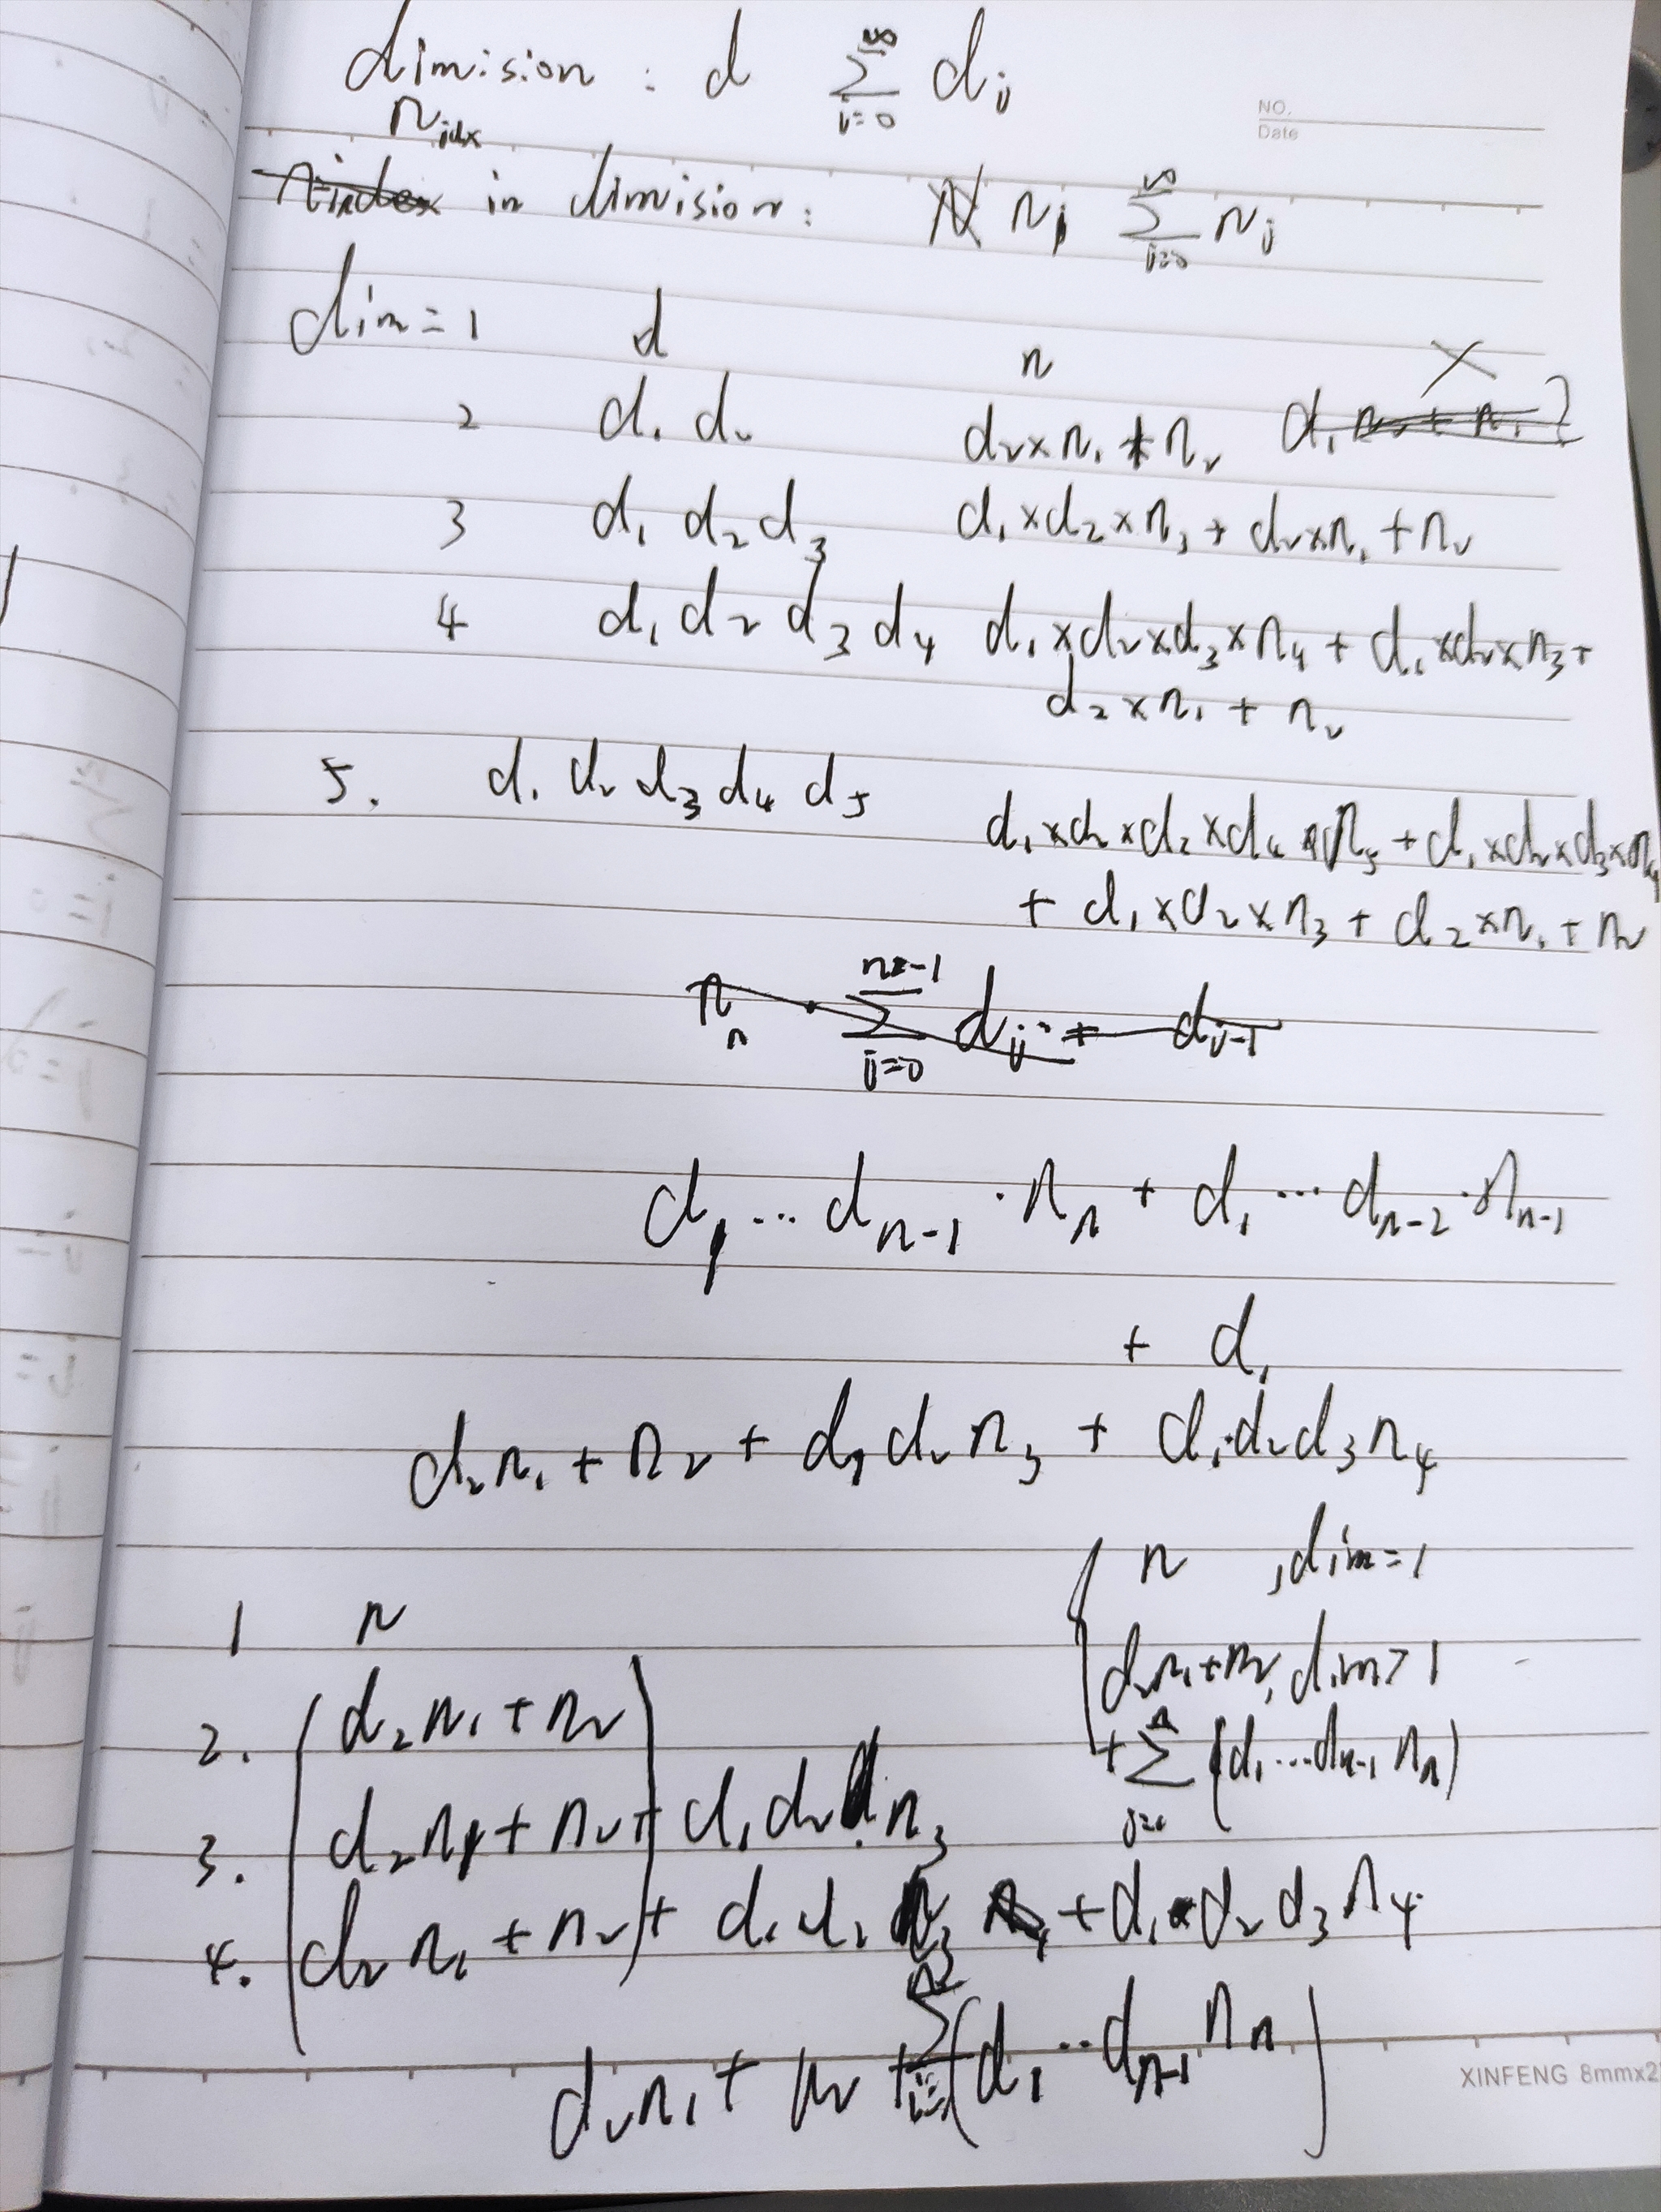 dimision : d ∑_{i=0}^{∞} d_i
NO.
Date
n_idx
in dimision: n_i ∑_{i=0}^{∞} n_i
dim=1 d n
2 d₁ d₂ d₂×n₁+n₂
3 d₁ d₂ d₃ d₁×d₂×n₃+d₂×n₁+n₂
4 d₁ d₂ d₃ d₄ d₁×d₂×d₃×n₄+d₁×d₂×n₃+
d₂×n₁+n₂
5. d₁ d₂ d₃ d₄ d₅ d₁×d₂×d₂×d₄×n₅+d₁×d₂×d₃×n₄
+ d₁×d₂×n₃+d₂×n₁+n₂
d₁…d_{n-1}·n_n + d₁…d_{n-2}·n_{n-1}
+ d₁
d₂n₁+n₂+d₁d₂n₃+d₁·d₂d₃n₄
n ,dim=1
1 n
d₂n₁+n₂, dim>1
2. d₂n₁+n₂
+∑(d₁…d_{n-1}n_n)
3. d₂n₁+n₂+d₁d₂n₃
4. d₂n₁+n₂+d₁d₂n₃+d₁d₂d₃n₄
d₂n₁+n₂+∑(d₁…d_{n-1}n_n)
XINFENG 8mmx2